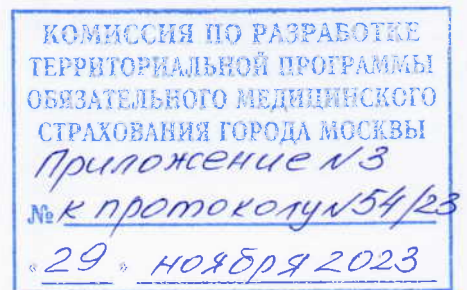 КОМИССИЯ ПО РАЗРАБОТКЕ
ТЕРРИТОРИАЛЬНОЙ ПРОГРАММЫ
ОБЯЗАТЕЛЬНОГО МЕДИЦИНСКОГО
СТРАХОВАНИЯ ГОРОДА МОСКВЫ
Приложение №3
№ к протоколу №54/23
«29» ноября 2023